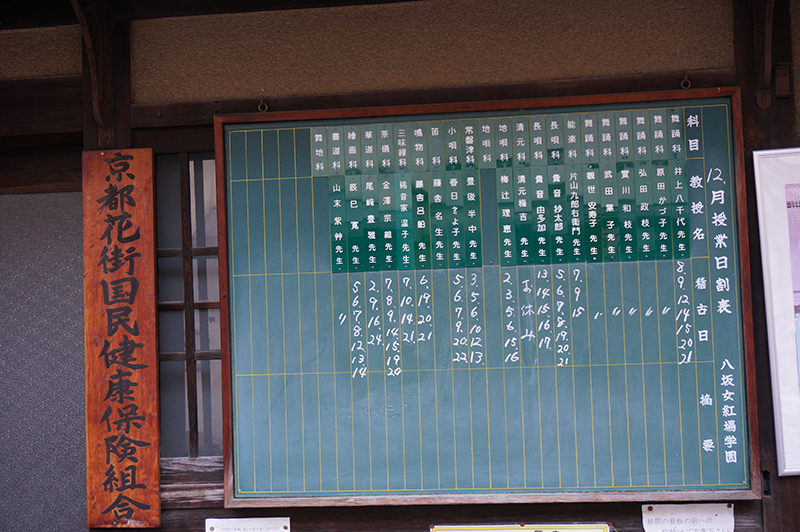 12月授業日割表 八坂女紅場学園
科目 教授名 稽古日 摘要
舞踊科 井上八千代先生 8.9.12.14.15.20.21
舞踊科 原田かづ子先生 〃
舞踊科 弘田政枝先生 〃
舞踊科 實川和枝先生 〃
舞踊科 武田葉子先生 〃
舞踊科 観世安寿子先生 〃
能楽科 片山九郎右衛門先生 7.9.15
長唄科 貴音紗太郎先生 5.6.7.8.19.20.21
長唄科 貴音由多加先生 13.14.15.16.17.
清元科 清元梅吉先生 お休み
地唄科 梅辻理恵先生 2.3.5.6.15.16
地唄科
常磐津科 豊後半中先生 3.5.6.10.12.13.
小唄科 春日とよ子先生 5.6.7.9.20.22.
笛科 藤舎名生先生
鳴物科 藤舎呂船先生 6.19.20.21
三味線科 橘音家温子先生 7.10.14.21
茶儀科 金澤宗維先生 7.8.9.14.15.19.20
華道科 尾崎豊雅先生 2.9.16.24.
絵画科 辰巳寛先生 5.6.7.8.12.13.14
書道科 山本紫艸先生 〃
舞地科
京都花街国民健康保険組合
昼間の看板の前への